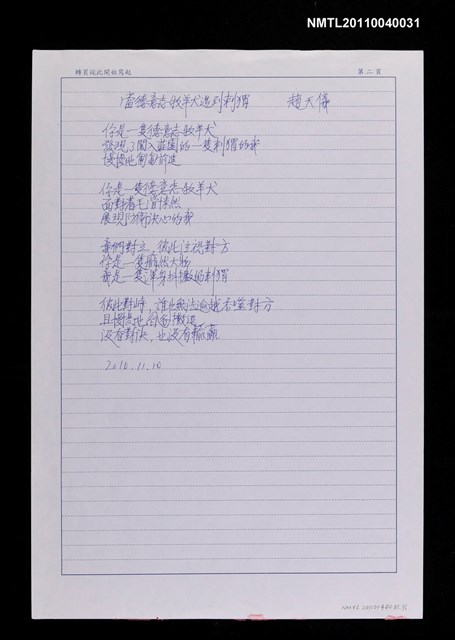 NMTL20110040031
轉頁從此開始寫起
第二頁
當德意志牧羊犬遇到刺蝟 趙天儀
你是一隻德意志牧羊犬
發現了闖入莊園的一隻刺蝟的我
慢慢地匍匐前進
你是一隻德意志牧羊犬
面對著毛骨悚然
展現防衛決心的我
我們對立,彼此注視對方
你是一隻龐然大物
我是一隻渾身抖擻的刺蝟
彼此對峙,誰也無法逾越吞噬對方
且慢慢地
沒有對決,也沒有輸贏
2010.11.10